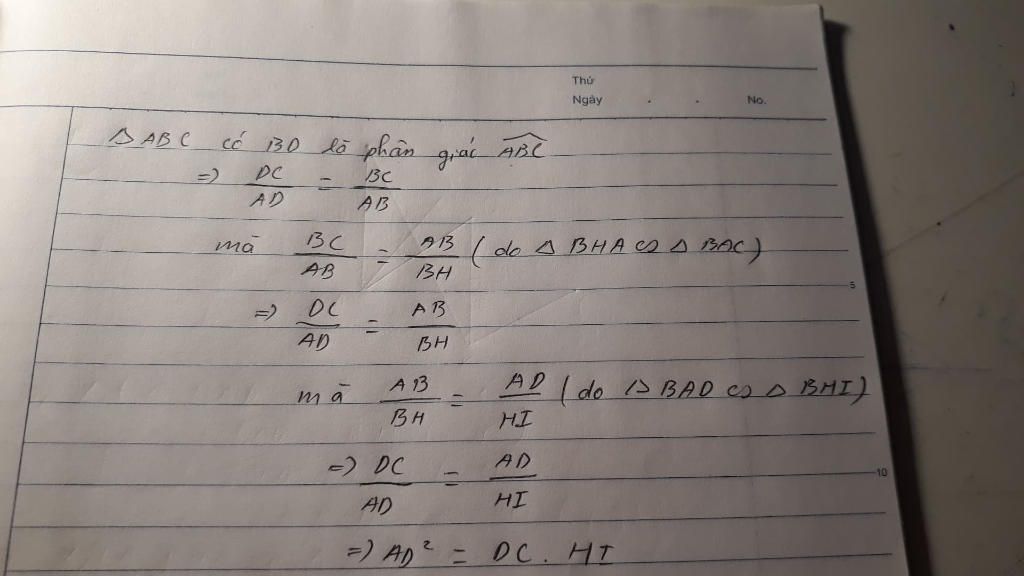 Thứ
Ngày . . No.
Δ ABC có BD là phân giác \widehat{ABC}
=> DC/AD = BC/AB
mà BC/AB = AB/BH (do Δ BHA ∽ Δ BAC)
5
=> DC/AD = AB/BH
mà AB/BH = AD/HI (do Δ BAD ∽ Δ BHI)
=> DC/AD = AD/HI
10
=> AD² = DC . HI